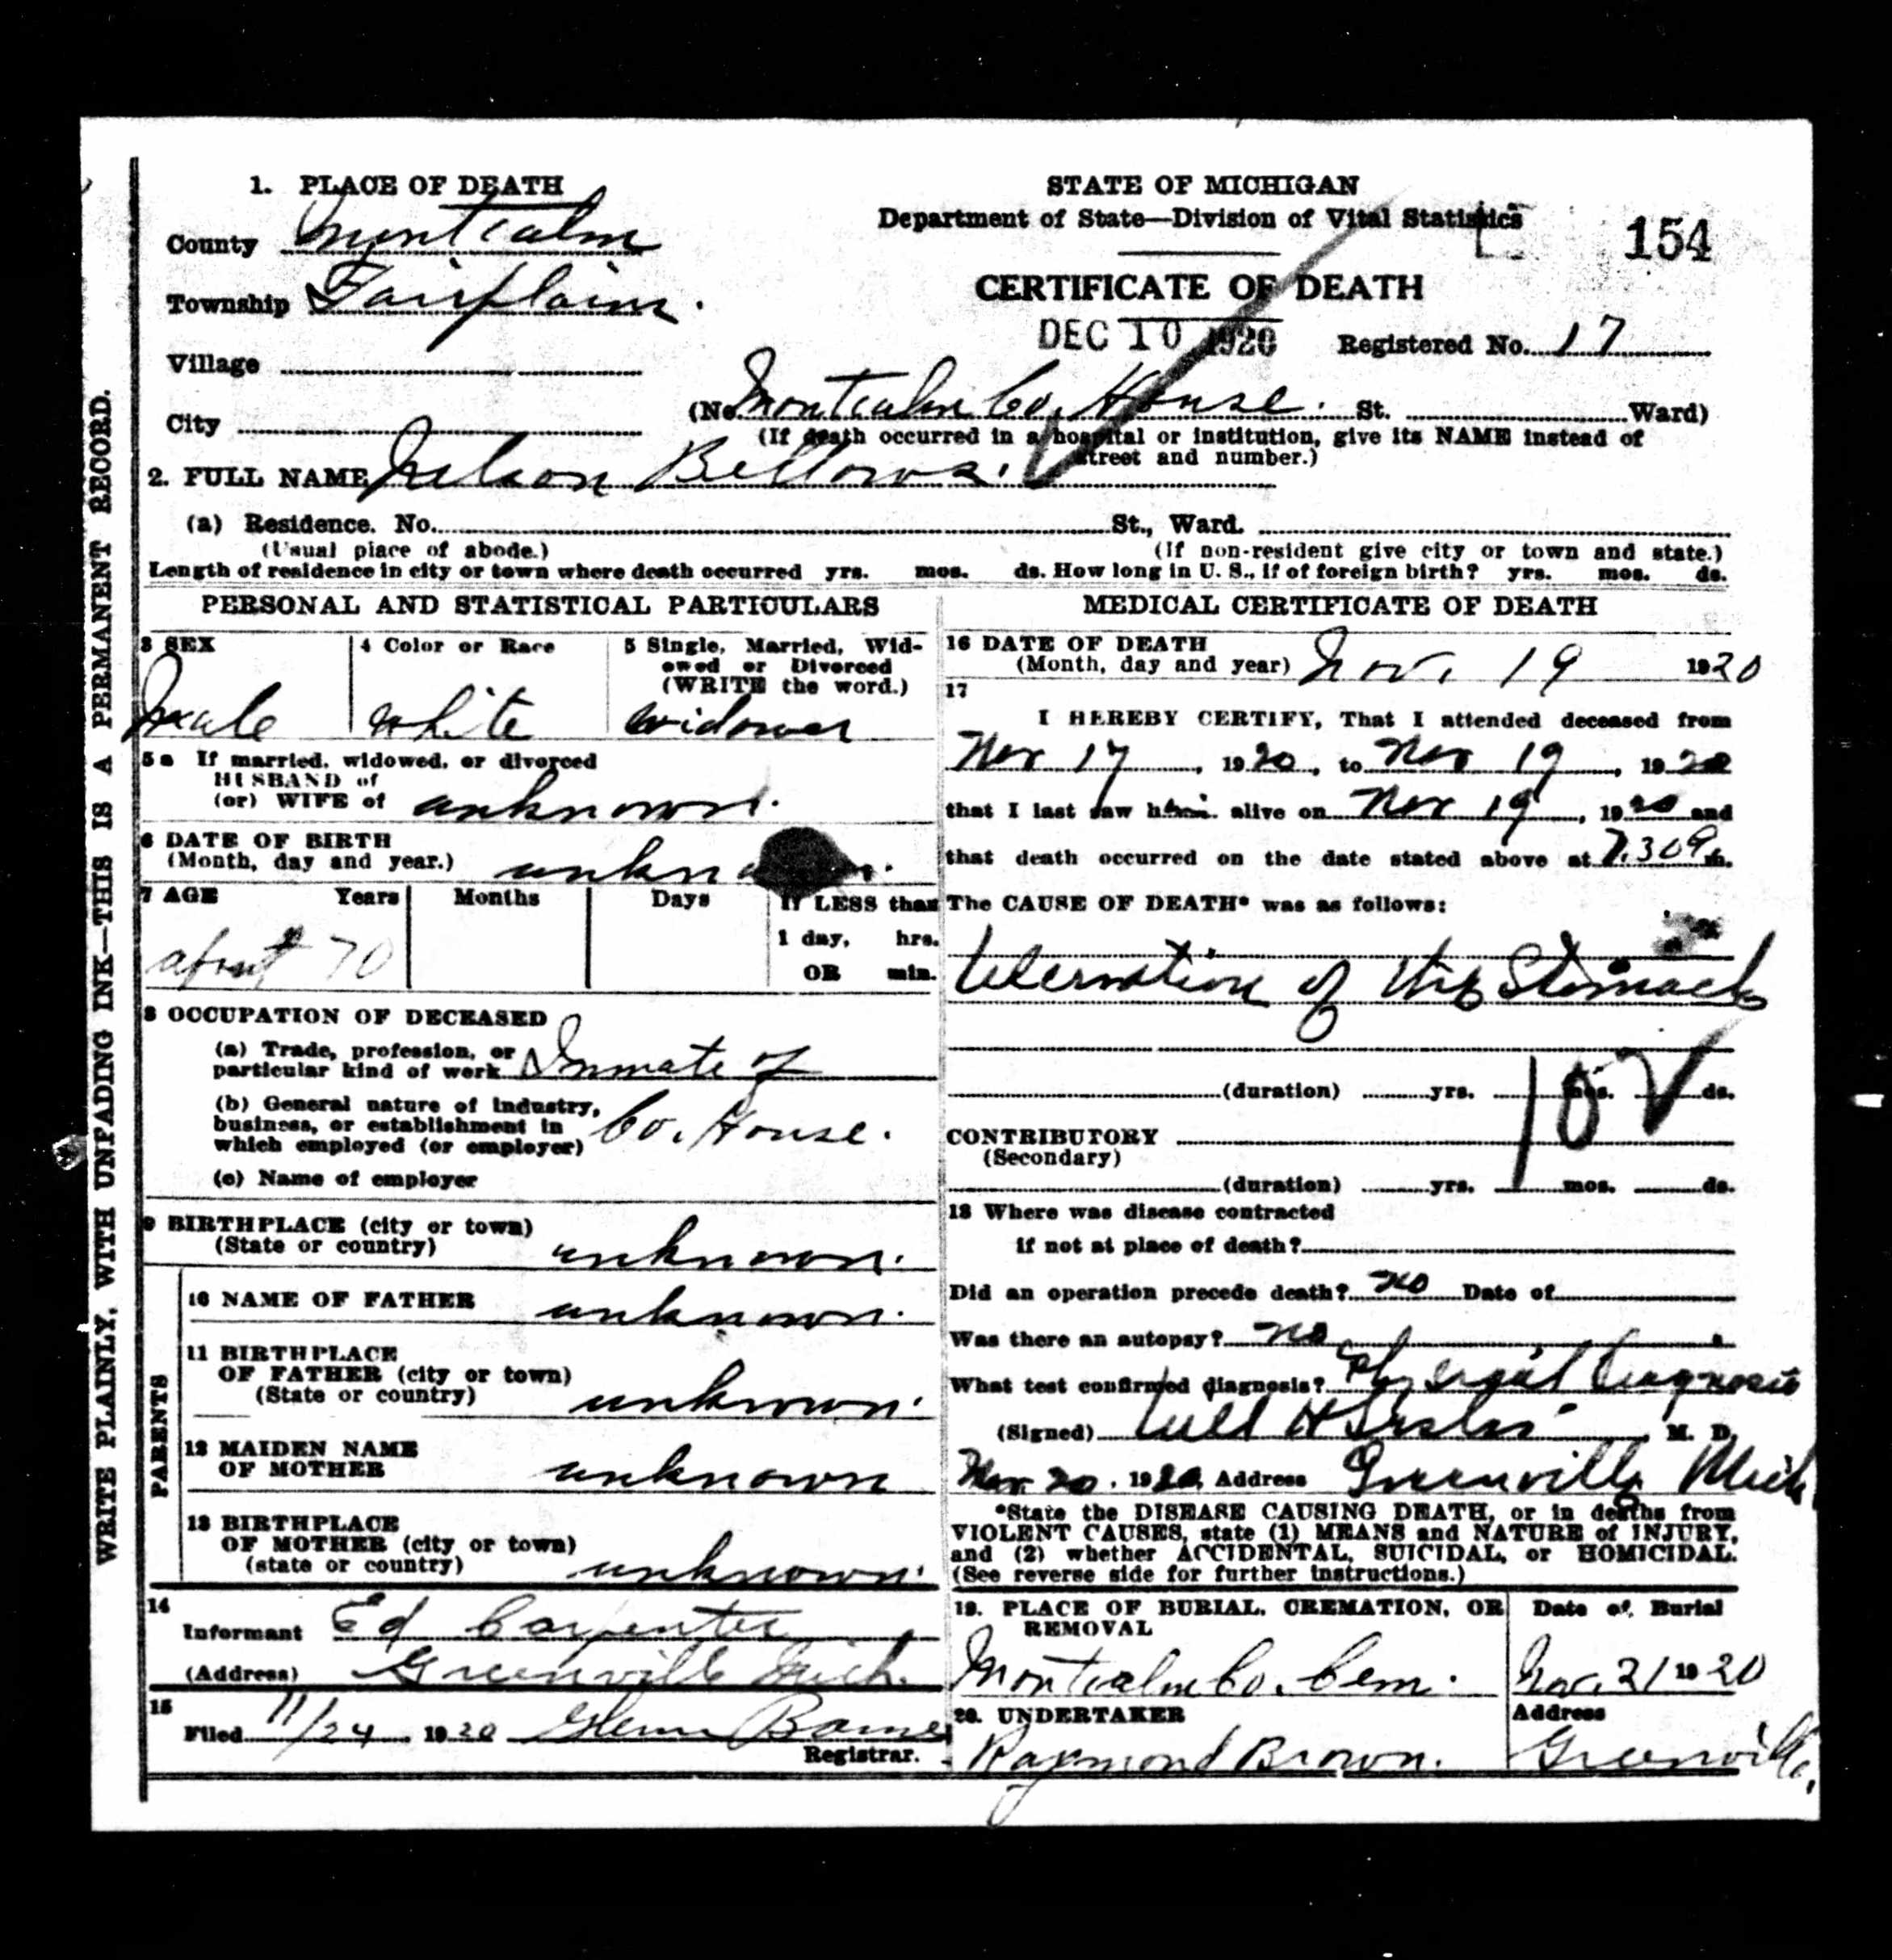 WRITE PLAINLY, WITH UNFADING INK—THIS IS A PERMANENT RECORD.
1. PLACE OF DEATH
County Montcalm
Township Fairplain.
Village
City
STATE OF MICHIGAN
Department of State—Division of Vital Statistics
154
CERTIFICATE OF DEATH
DEC 10 1920
Registered No. 17
(No. Montcalm Co. House. St. Ward)
(If death occurred in a hospital or institution, give its NAME instead of
street and number.)
2. FULL NAME Nelson Bellows.
(a) Residence. No. St., Ward.
(Usual place of abode.) (If non-resident give city or town and state.)
Length of residence in city or town where death occurred yrs. mos. ds. How long in U. S., if of foreign birth? yrs. mos. ds.
PERSONAL AND STATISTICAL PARTICULARS
3 SEX
Male
4 Color or Race
White
5 Single, Married, Wid-
owed or Divorced
(WRITE the word.)
Widower
5a If married, widowed, or divorced
HUSBAND of
(or) WIFE of unknown.
6 DATE OF BIRTH
(Month, day and year.) unknown.
7 AGE Years Months Days If LESS than
1 day, hrs.
OR min.
about 70
8 OCCUPATION OF DECEASED
(a) Trade, profession, or
particular kind of work Inmate of
(b) General nature of industry,
business, or establishment in
which employed (or employer) Co. House.
(c) Name of employer
9 BIRTHPLACE (city or town)
(State or country) unknown.
PARENTS
10 NAME OF FATHER unknown.
11 BIRTHPLACE
OF FATHER (city or town)
(State or country) unknown.
12 MAIDEN NAME
OF MOTHER unknown
13 BIRTHPLACE
OF MOTHER (city or town)
(state or country) unknown.
14
Informant Ed Carpenter
(Address) Greenville Mich.
15
Filed 11/24 1920 Glenn Barnes
Registrar.
MEDICAL CERTIFICATE OF DEATH
16 DATE OF DEATH
(Month, day and year) Nov. 19 1920
17
I HEREBY CERTIFY, That I attended deceased from
Nov 17, 1920, to Nov 19, 1920
that I last saw him alive on Nov 19, 1920 and
that death occurred on the date stated above at 7.30 m.
The CAUSE OF DEATH* was as follows:
Ulceration of the Stomach
(duration) yrs. mos. ds.
102
CONTRIBUTORY
(Secondary)
(duration) yrs. mos. ds.
18 Where was disease contracted
if not at place of death?
Did an operation precede death? no Date of
Was there an autopsy? no
What test confirmed diagnosis? Physical diagnosis
(Signed) Will H M. D.
Nov. 20. 1920 Address Greenville Mich.
*State the DISEASE CAUSING DEATH, or in deaths from
VIOLENT CAUSES, state (1) MEANS and NATURE of INJURY,
and (2) whether ACCIDENTAL, SUICIDAL, or HOMICIDAL.
(See reverse side for further instructions.)
19. PLACE OF BURIAL, CREMATION, OR
REMOVAL
Montcalm Co. Cem.
Date of Burial
Nov. 21 1920
20. UNDERTAKER
Raymond Brown.
Address
Greenville,